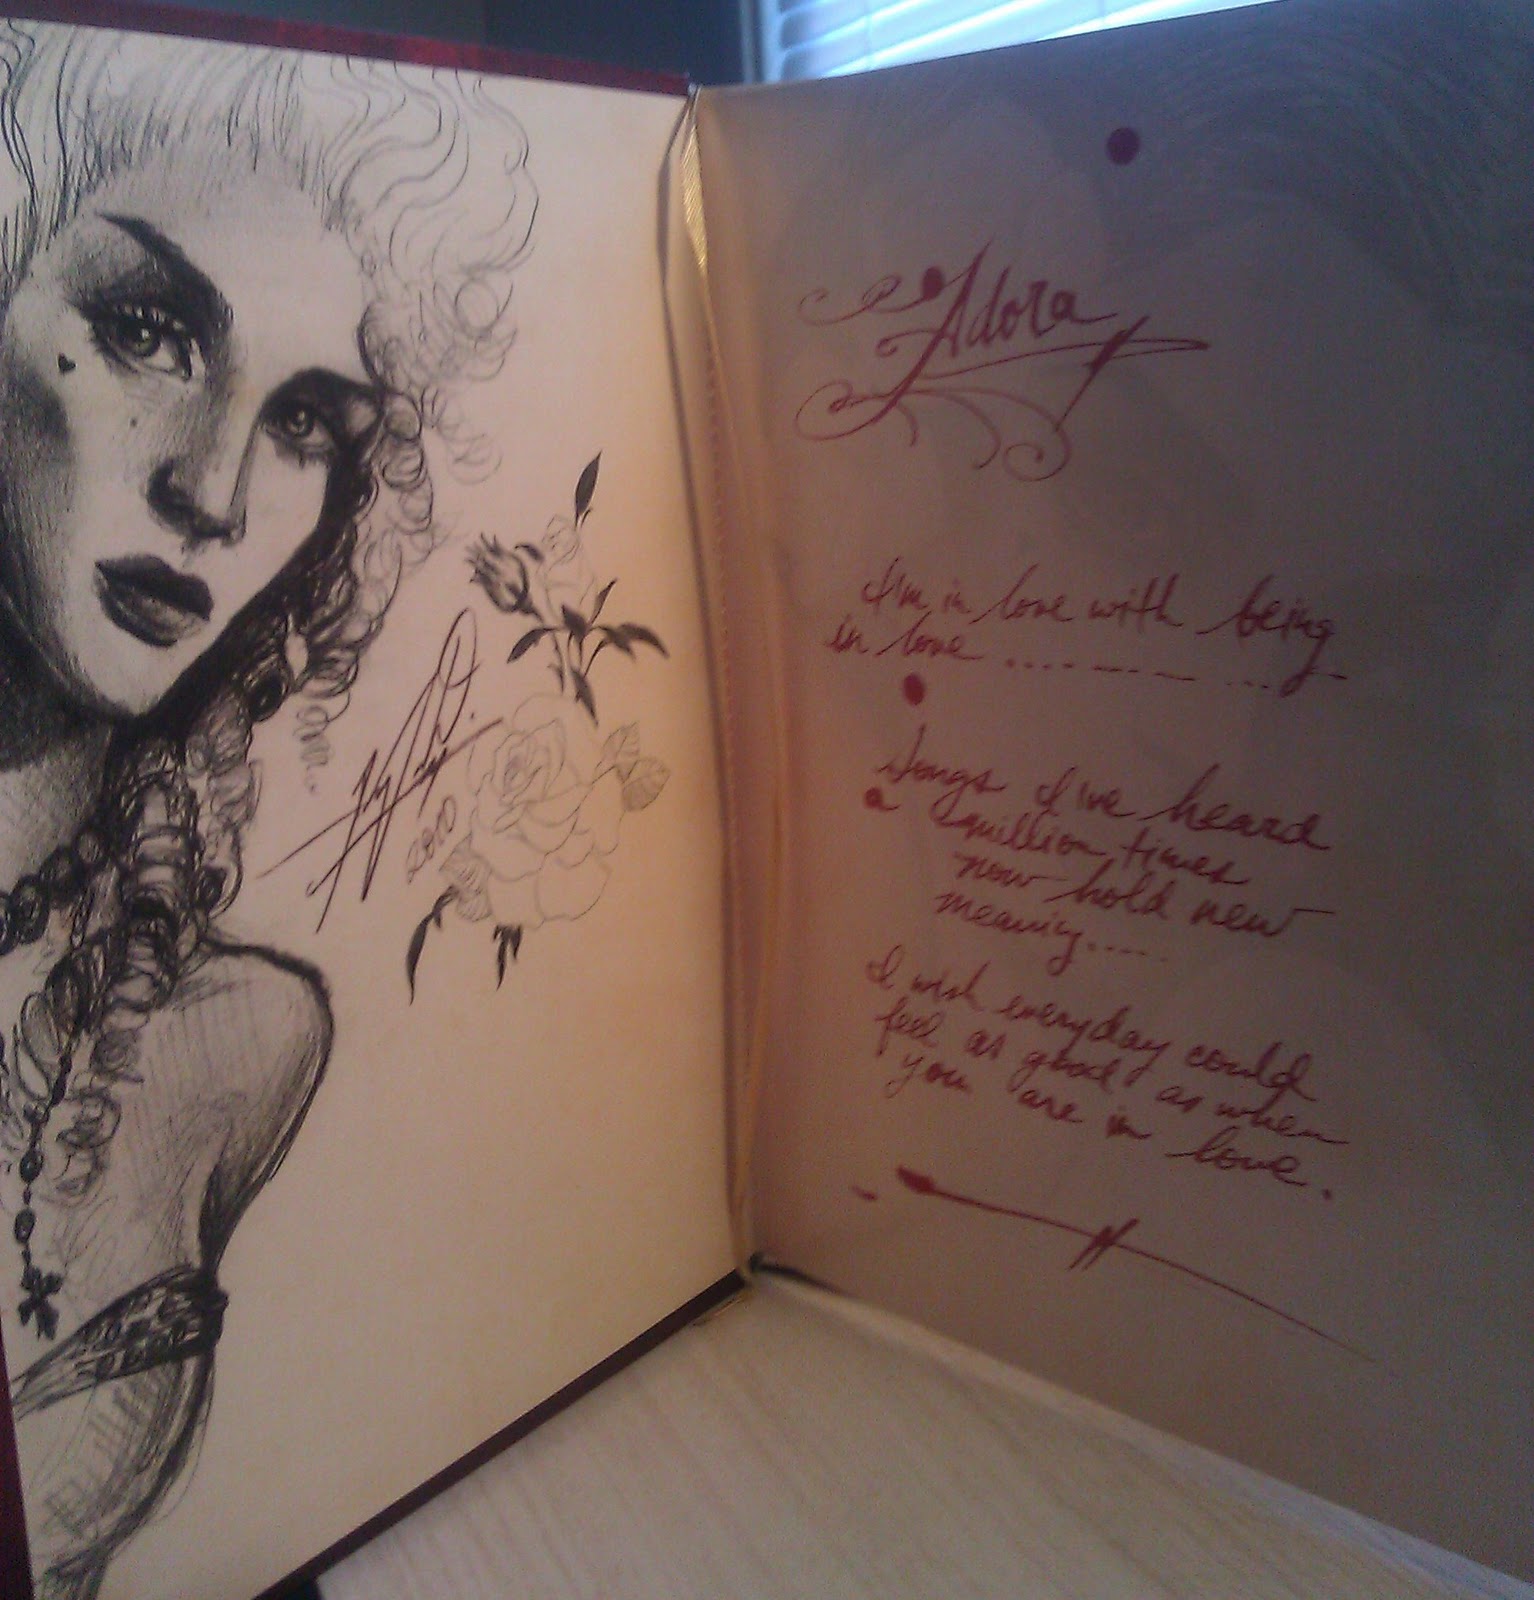 2010
Adora
I'm in love with being
in love
Songs I've heard
a million times
now hold new
meaning....
I wish everyday could
feel as good as when
you are in love.